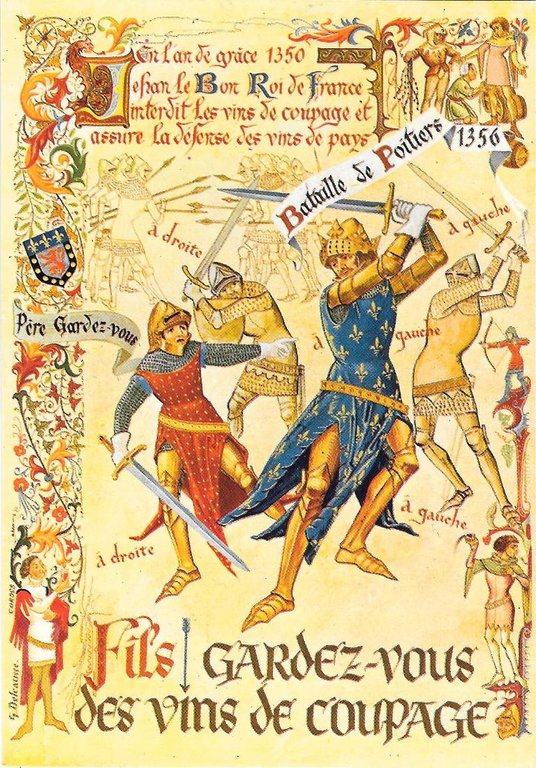 En l'an de grâce 1350
Jehan le Bon Roi de France
interdit les vins de coupage et
assure la défense des vins de pays
Bataille de Poitiers 1356
à droite
à gauche
Père Gardez-vous
à gauche
à droite
à gauche
Fils GARDEZ-VOUS
des vins de coupage